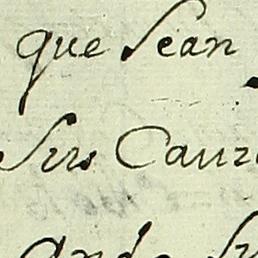 que Sean
Sus Cauz